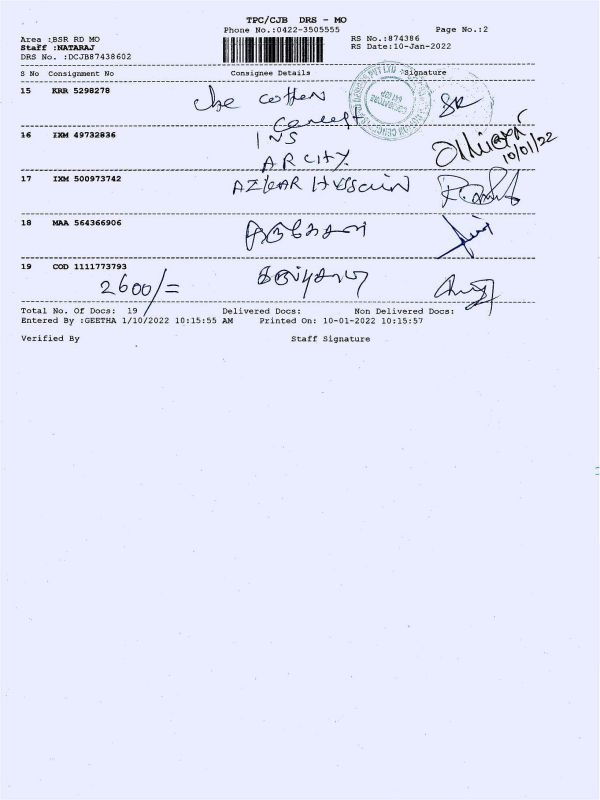 TPC/CJB DRS - MO
Phone No.:0422-3505555 Page No.:2
Area :BSR RD MO RS No.:874386
Staff :NATARAJ RS Date:10-Jan-2022
DRS No. :DCJB87438602
S No Consignment No Consignee Details Signature
15 KRR 5298278 the cotton
concept
16 IXM 49732836 INS
AR CITY
10/01/22
17 IXM 500973742 AZHAR HUSSAIN
18 MAA 564366906
19 COD 1111773793
2600/=
Total No. Of Docs: 19 Delivered Docs: Non Delivered Docs:
Entered By :GEETHA 1/10/2022 10:15:55 AM Printed On: 10-01-2022 10:15:57
Verified By Staff Signature